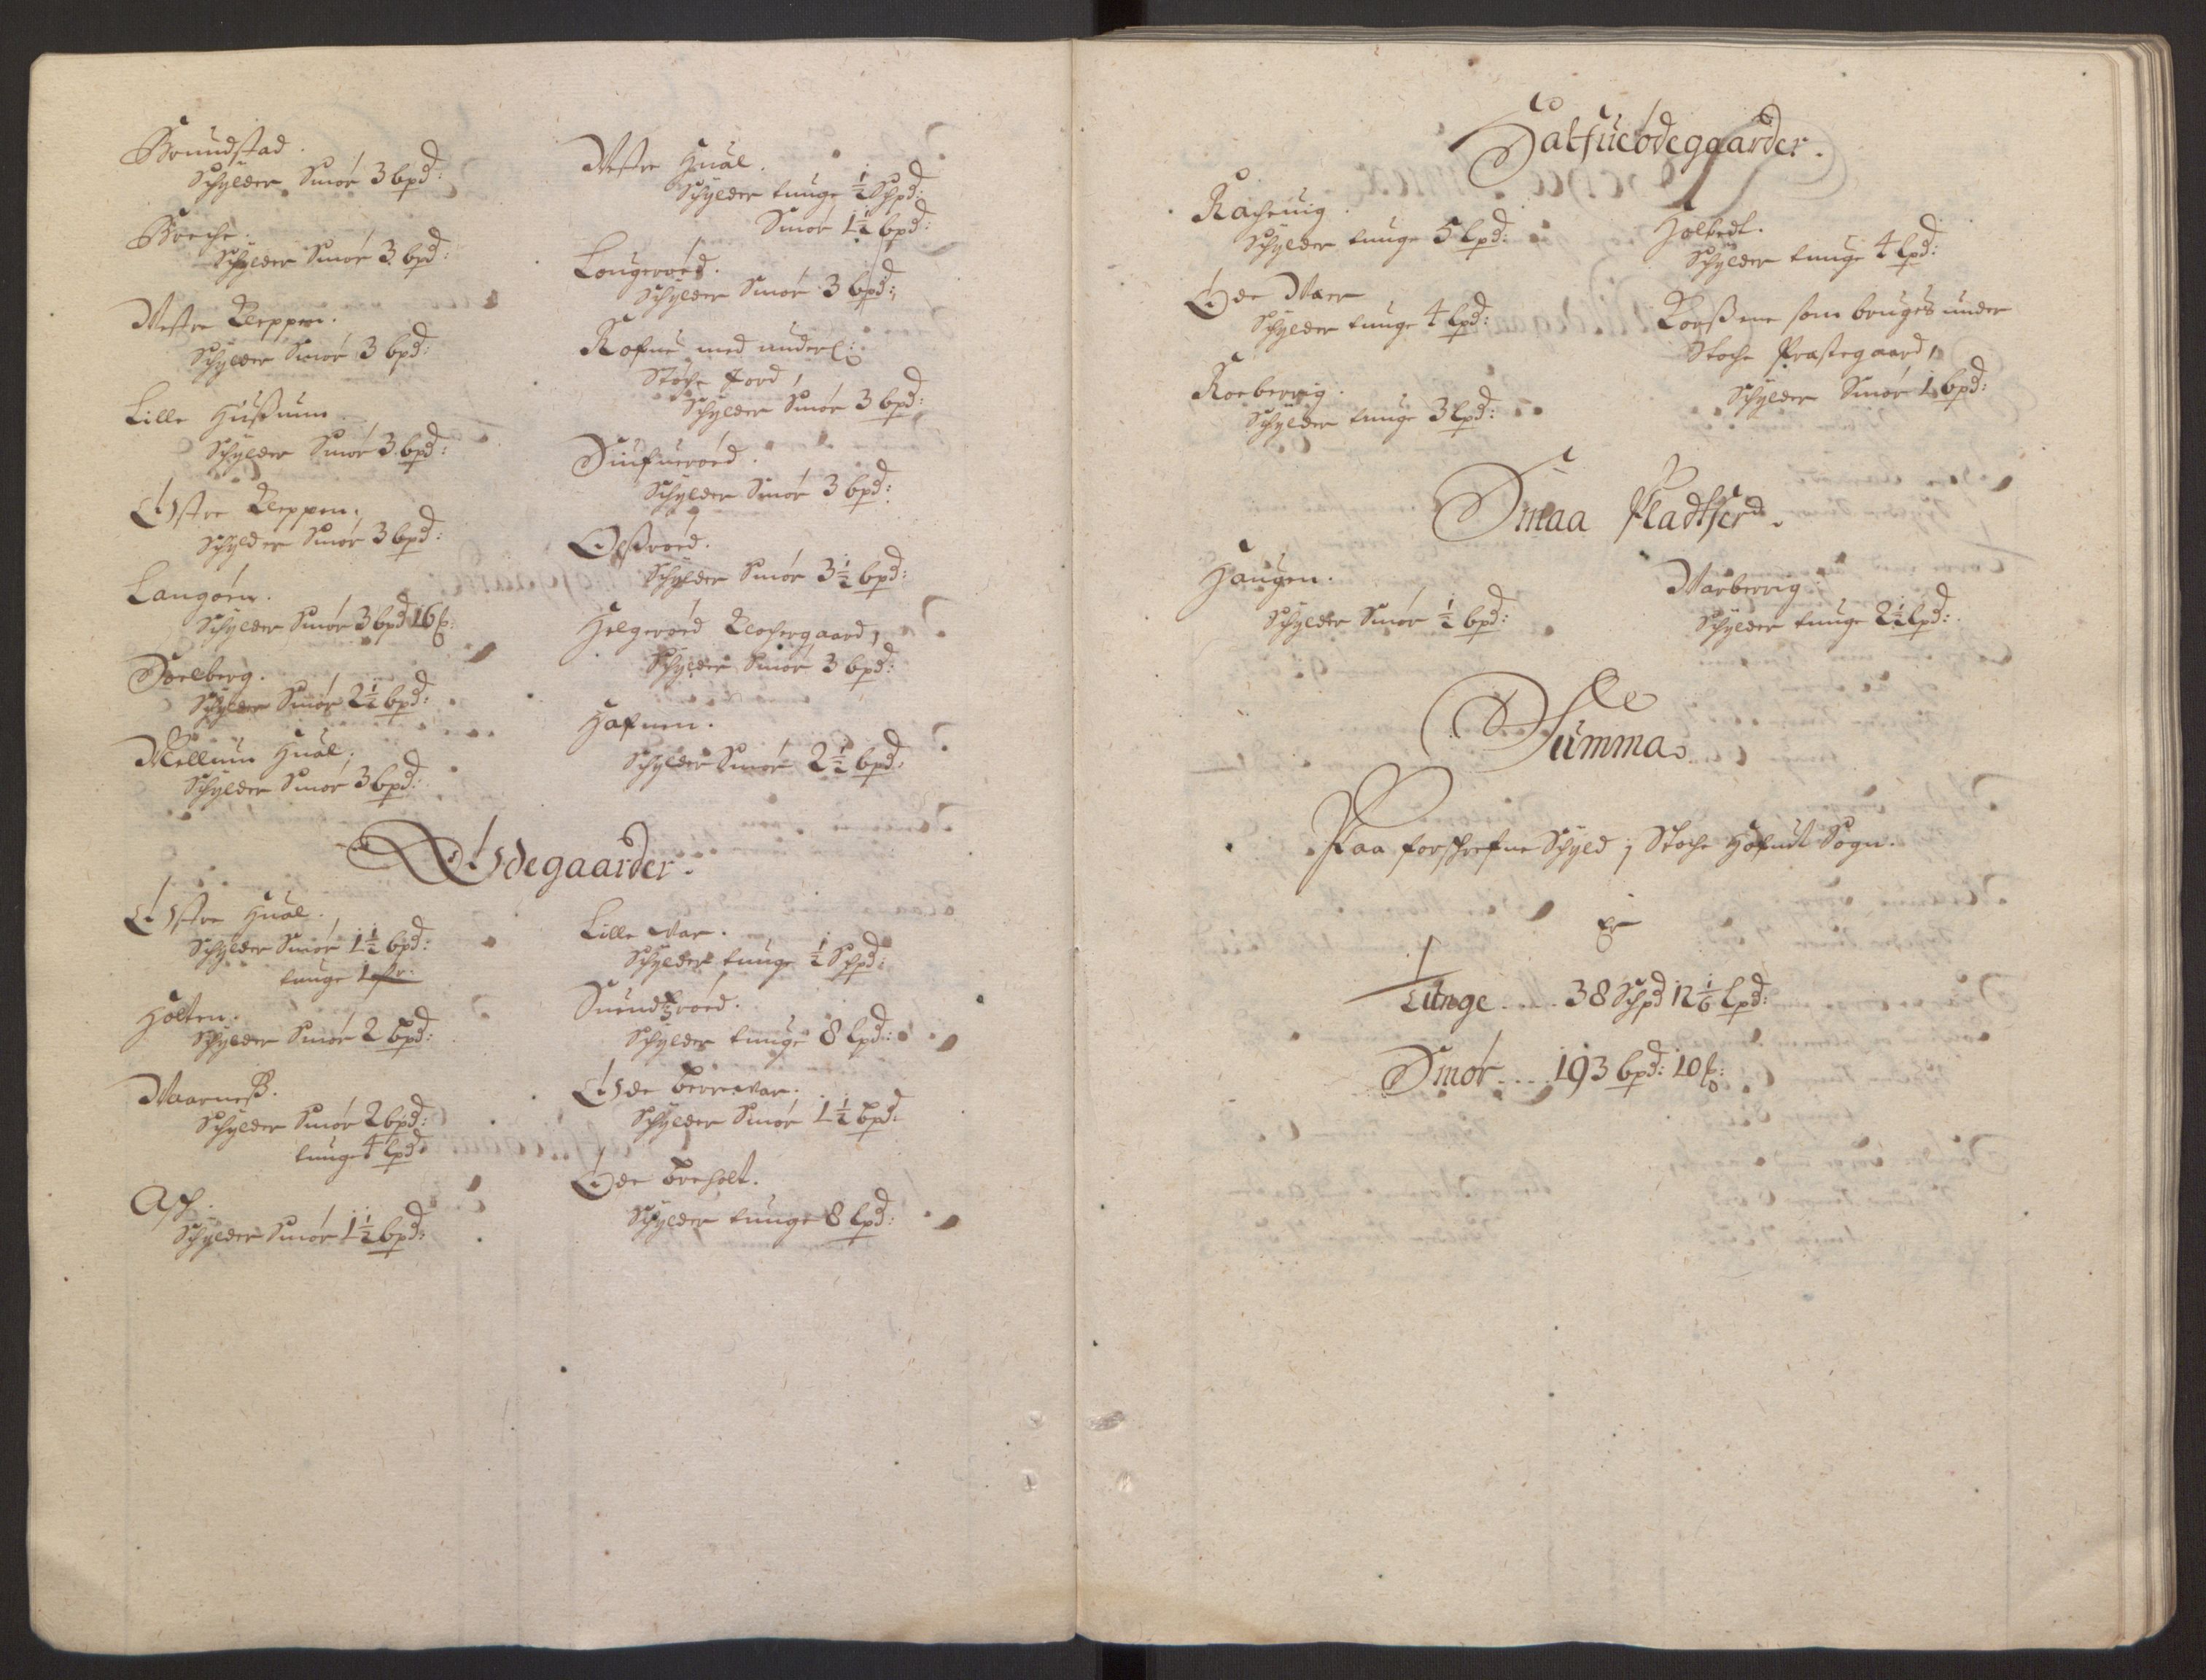 Brundstad.
Schylder Smør 3 bpd:
Breche.
Schylder Smør 3 bpd:
Westre Kleppen.
Schylder Smør 3 bpd:
Lille Hußum
Schylder Smør 3 bpd:
Østre Kleppen.
Schylder Smør 3 bpd:
Langøen.
Schylder Smør 3 bpd 16
Soelberg.
Schylder Smør 2½ bpd:
Mellum Hual,
Schylder Smør 3 bpd:
Westre Hual.
Schylder tunge ½ Schpd:
Smør 1½ bpd:
Laugeroed.
Schylder Smør 3 bpd:
Rofne med underl:
Støche Jord,
Schylder Smør 3 bpd:
Schylder Smør 3 bpd:
Schylder Smør 3½ bpd:
Helgeroed Klochergaard,
Schylder Smør 3 bpd:
Hafnen.
Schylder Smør 2½ bpd:
Ødegaarder.
Østre Hual.
Schylder Smør 1½ bpd:
tunge 1
Holten.
Schylder Smør 2 bpd:
Waarneß.
Schylder Smør 2 bpd:
tunge 4 lpd
Ash.
Schylder Smør 1½ bpd:
Lille War.
Schylder tunge ½ Schpd:
Suendzroed.
Schylder tunge 8 lpd:
Øde Berrewar.
Schylder Smør 1½ bpd:
Øde Breholt.
Schylder tunge 8 lpd:
Halfueødegaarder.
Racheuig.
Schylder tunge 5 lpd:
Øde Waer
Schylder tunge 4 lpd:
Roeberrig.
Schylder tunge 3 lpd:
Holtedt.
Schylder tunge 4 lpd:
Korßene som bruges under
Stoche Præstegaard,
Schylder Smør 1 bpd:
Smaa Pladtser.
Haugen.
Schylder Smør ½ bpd:
Warberrig:
Schylder tunge 2½ lpd:
Summa
Paa forschrefne Schyld j Stoche Hofuet Sogn.
Er
Tunge .... 38 Schpd 12 1/6 lpd:
Smør .... 193 bpd: 10